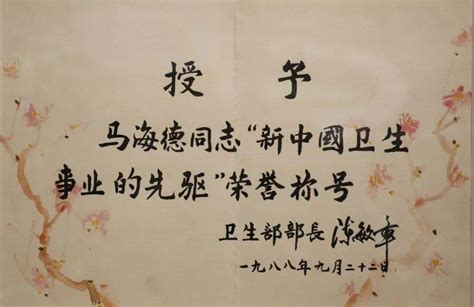 授予
马海德同志“新中國卫生
事业的先驱”荣誉称号
卫生部部長 陈敏章
一九八八年九月二十二日